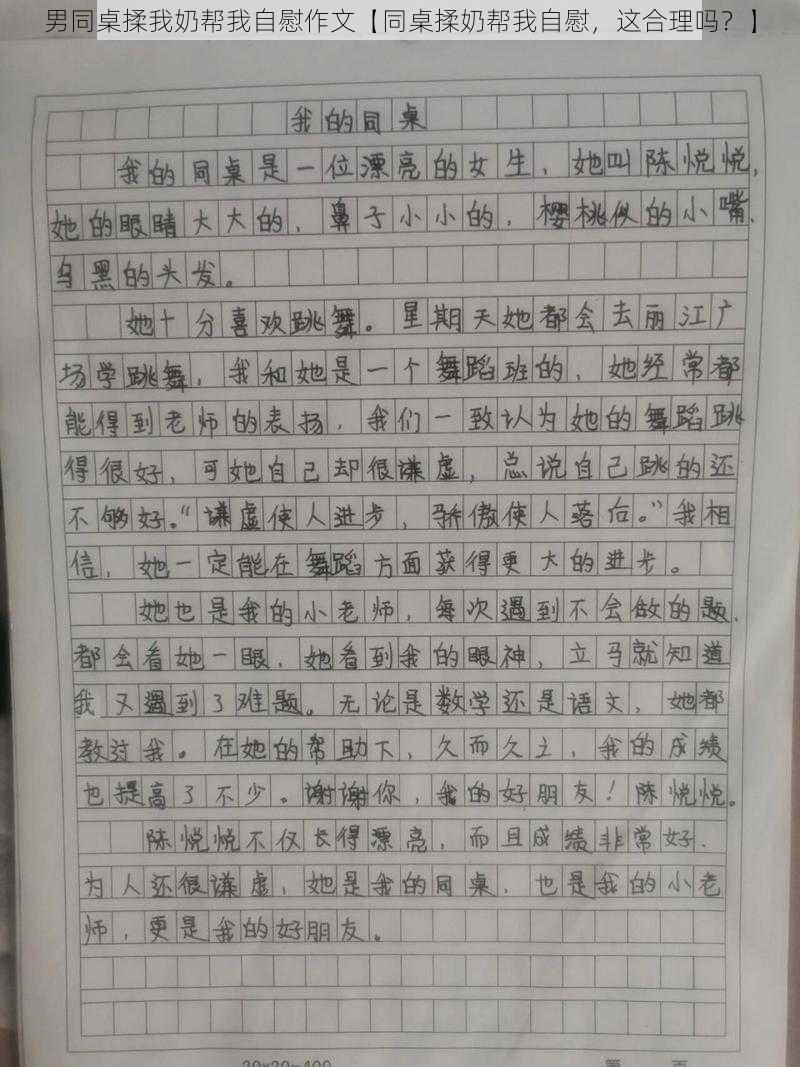 我的同桌
我的同桌是一位漂亮的女生,她叫陈悦悦,
她的眼睛大大的,鼻子小小的,樱桃似的小嘴,
乌黑的头发。
她十分喜欢跳舞。星期天她都会去丽江广
场学跳舞,我和她是一个舞蹈班的,她经常都
能得到老师的表扬,我们一致认为她的舞蹈跳
得很好,可她自己却很谦虚,总说自己跳的还
不够好。“谦虚使人进步,骄傲使人落后。”我相
信,她一定能在舞蹈方面获得更大的进步。
她也是我的小老师,每次遇到不会做的题,
都会看她一眼,她看到我的眼神,立马就知道
我又遇到了难题。无论是数学还是语文,她都
教过我。在她的帮助下,久而久之,我的成绩
也提高了不少。谢谢你,我的好朋友!陈悦悦。
陈悦悦不仅长得漂亮,而且成绩非常好,
为人还很谦虚,她是我的同桌,也是我的小老
师,更是我的好朋友。
20x20=400 第 页